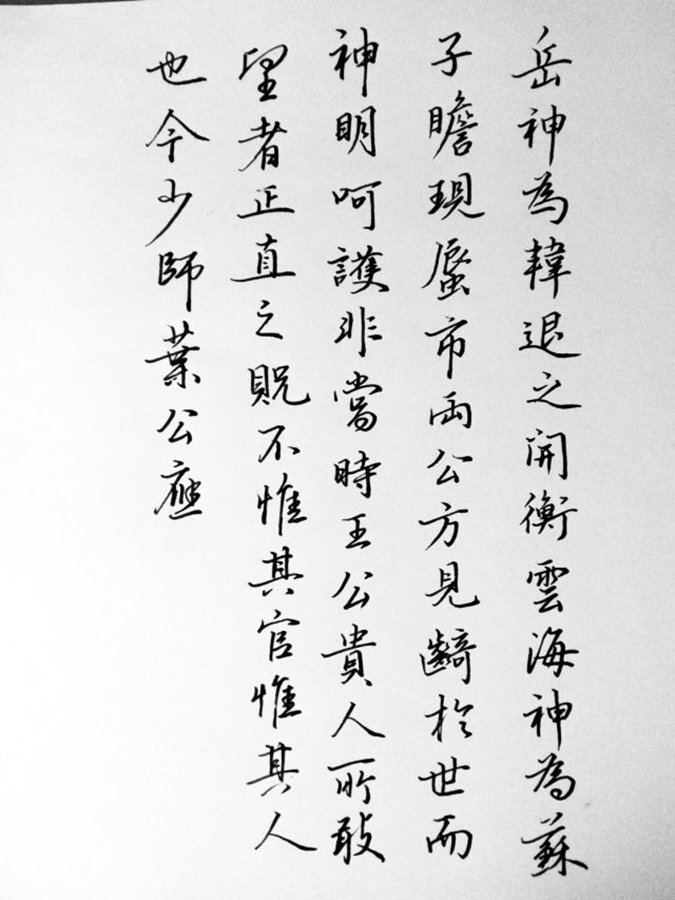 岳神為韓退之開衡雲海神為蘇
子瞻現蜃市兩公方見齮於世而
神明呵護非當時王公貴人所敢
望者正直之貺不惟其官惟其人
也今少師葉公應